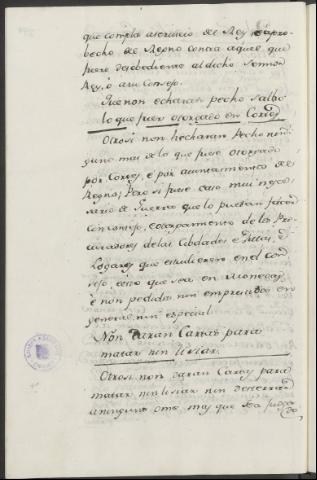 que compla aservicio del Rey e apro-
becho del Regno contra aquel que
fuere desobediente al dicho Sennor
Rey, o asu Consejo.
Que non echaran pecho salbo
lo que fuer otorgado en Cortes
Otrosi non hecharan Pecho nin-
guno mas de lo que fuese otorgado
por Cortes, e por aiuntamiento del
Regno; Pero si fuese caso mui nece-
sario de Guerra que lo puedan facer
con Consejo, e otorgamiento de los Pro-
curadores de las Cibdades e Villas, e
Logares que estudieren en el Con-
sejo, esto que sea en Monedas
e non pedidos nin emprestidos en
general nin especial
Non daran Cartas para
matar nin lisiar.
Otrosi non daran Cartas para
matar nin lisiar nin desterrar
a ninguno ome, mas que sea juzga-
do